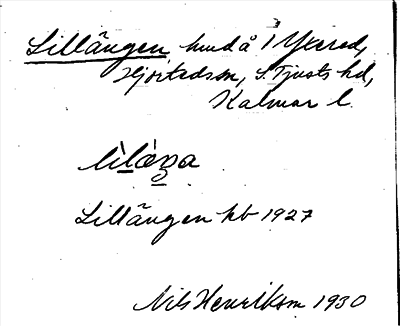 Lillängen hmd å 1 Ykered,
Hjorted sn, S. Tjusts hd,
Kalmar l.
lìlæŋa
Lillängen kb 1927
Nils Henrikson 1930